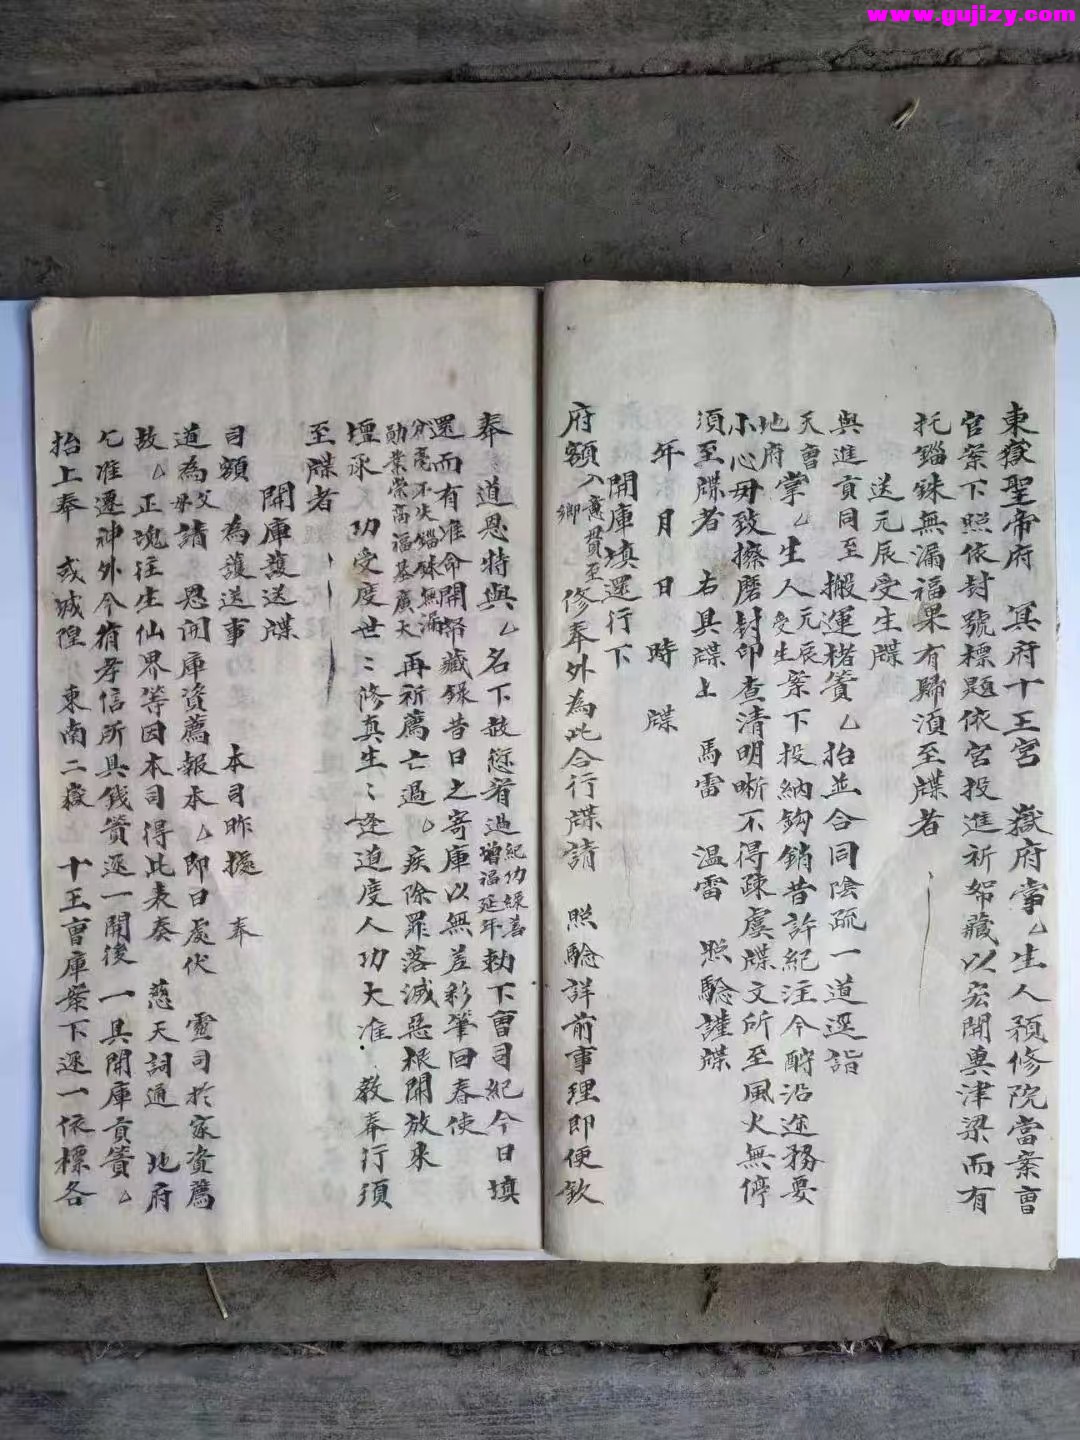 www.gujizy.com
東嶽聖帝府 冥府十王宮 嶽府掌厶生人預修院當案曹
官案下照依封號標題依宮投進祈帑藏以宏開與津梁而有
托錙銖無漏福果有歸須至牒者
送元辰受生牒
與進貢同至 搬運楮籫厶抬並合同陰疏一道逕詣
天曹地府掌厶生人元辰受生案下投納鈎銷昔許紀注今酧沿途務要
小心毋致擦磨封印查清明晰不得疎虞牒文所至風火無停
須至牒者 右具牒上 馬雷 温雷 照驗謹牒
年 月 日 時 牒
開庫填還行下
府額 入鄉貫至 修奉外為此合行牒請 照驗詳前事理即便欽
奉道恩特與厶名下赦愆宥過紀功錄善增福延年勅下曹司紀今日填
還而有准命開帑藏錄昔日之寄庫以無差彩筆回春使
分毫不失錙銖無漏勛業崇高福基廣大再祈薦亡過厶疾除罪落滅惡根開放來
壇承功受度世〻修真生〻逢道度人功大准教奉行須
至牒者
開庫護送牒
司額 為護送事 本司昨據 奉
道為父母請 恩開庫資薦報本厶即日處伏 靈司於家資薦
故厶正魂往生仙界等因本司得此表奏 慈天詞通 地府
乞准遷神外今脩孝信所具錢籫逐一開後 一具開庫貢籫厶
抬上奉 或城隍 東南二嶽 十王曹庫案下逐一依標各